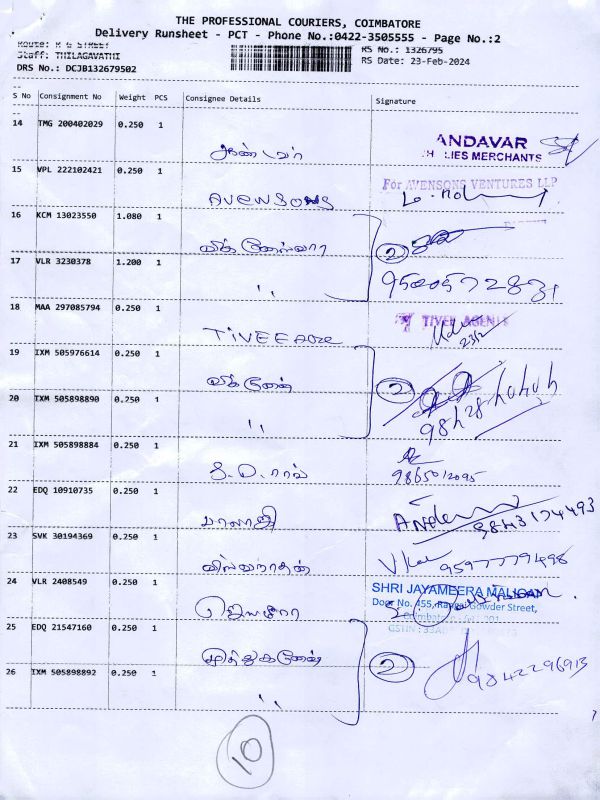 THE PROFESSIONAL COURIERS, COIMBATORE
Delivery Runsheet - PCT - Phone No.:0422-3505555 - Page No.:2
Route: R G STREET
RS No.: 1326795
Staff: THILAGAVATHI
RS Date: 23-Feb-2024
DRS No.: DCJB132679502
S No Consignment No Weight PCS Consignee Details Signature
14 TMG 200402029 0.250 1
ஆண்டவர்
ANDAVAR
LIES MERCHANTS
15 VPL 222102421 0.250 1
AVENSONS
For AVENSONS VENTURES LLP
16 KCM 13023550 1.080 1
விக்னேஸ்வரா
2
17 VLR 3230378 1.200 1
"
18 MAA 297085794 0.250 1
TIVEE
TIVEE AGENCIES
23/2
19 IXM 505976614 0.250 1
விக்னேஷ்
2
20 IXM 505898890 0.250 1
"
21 IXM 505898884 0.250 1
9865012095
22 EDQ 10910735 0.250 1
பாலாஜி
9843174493
23 SVK 30194369 0.250 1
விஸ்வநாதன்
24 VLR 2408549 0.250 1
ஜெயமீரா
SHRI JAYAMEERA MALIGAI
Door No. 455, Rangai Gowder Street,
25 EDQ 21547160 0.250 1
முத்துகணேஷ்
2
9842296913
26 IXM 505898892 0.250 1
"
10